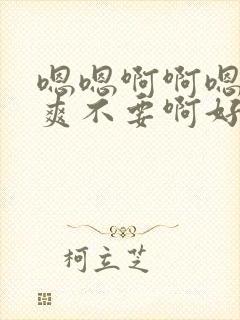 嗯嗯啊啊嗯
爽不要啊好
柯立芝